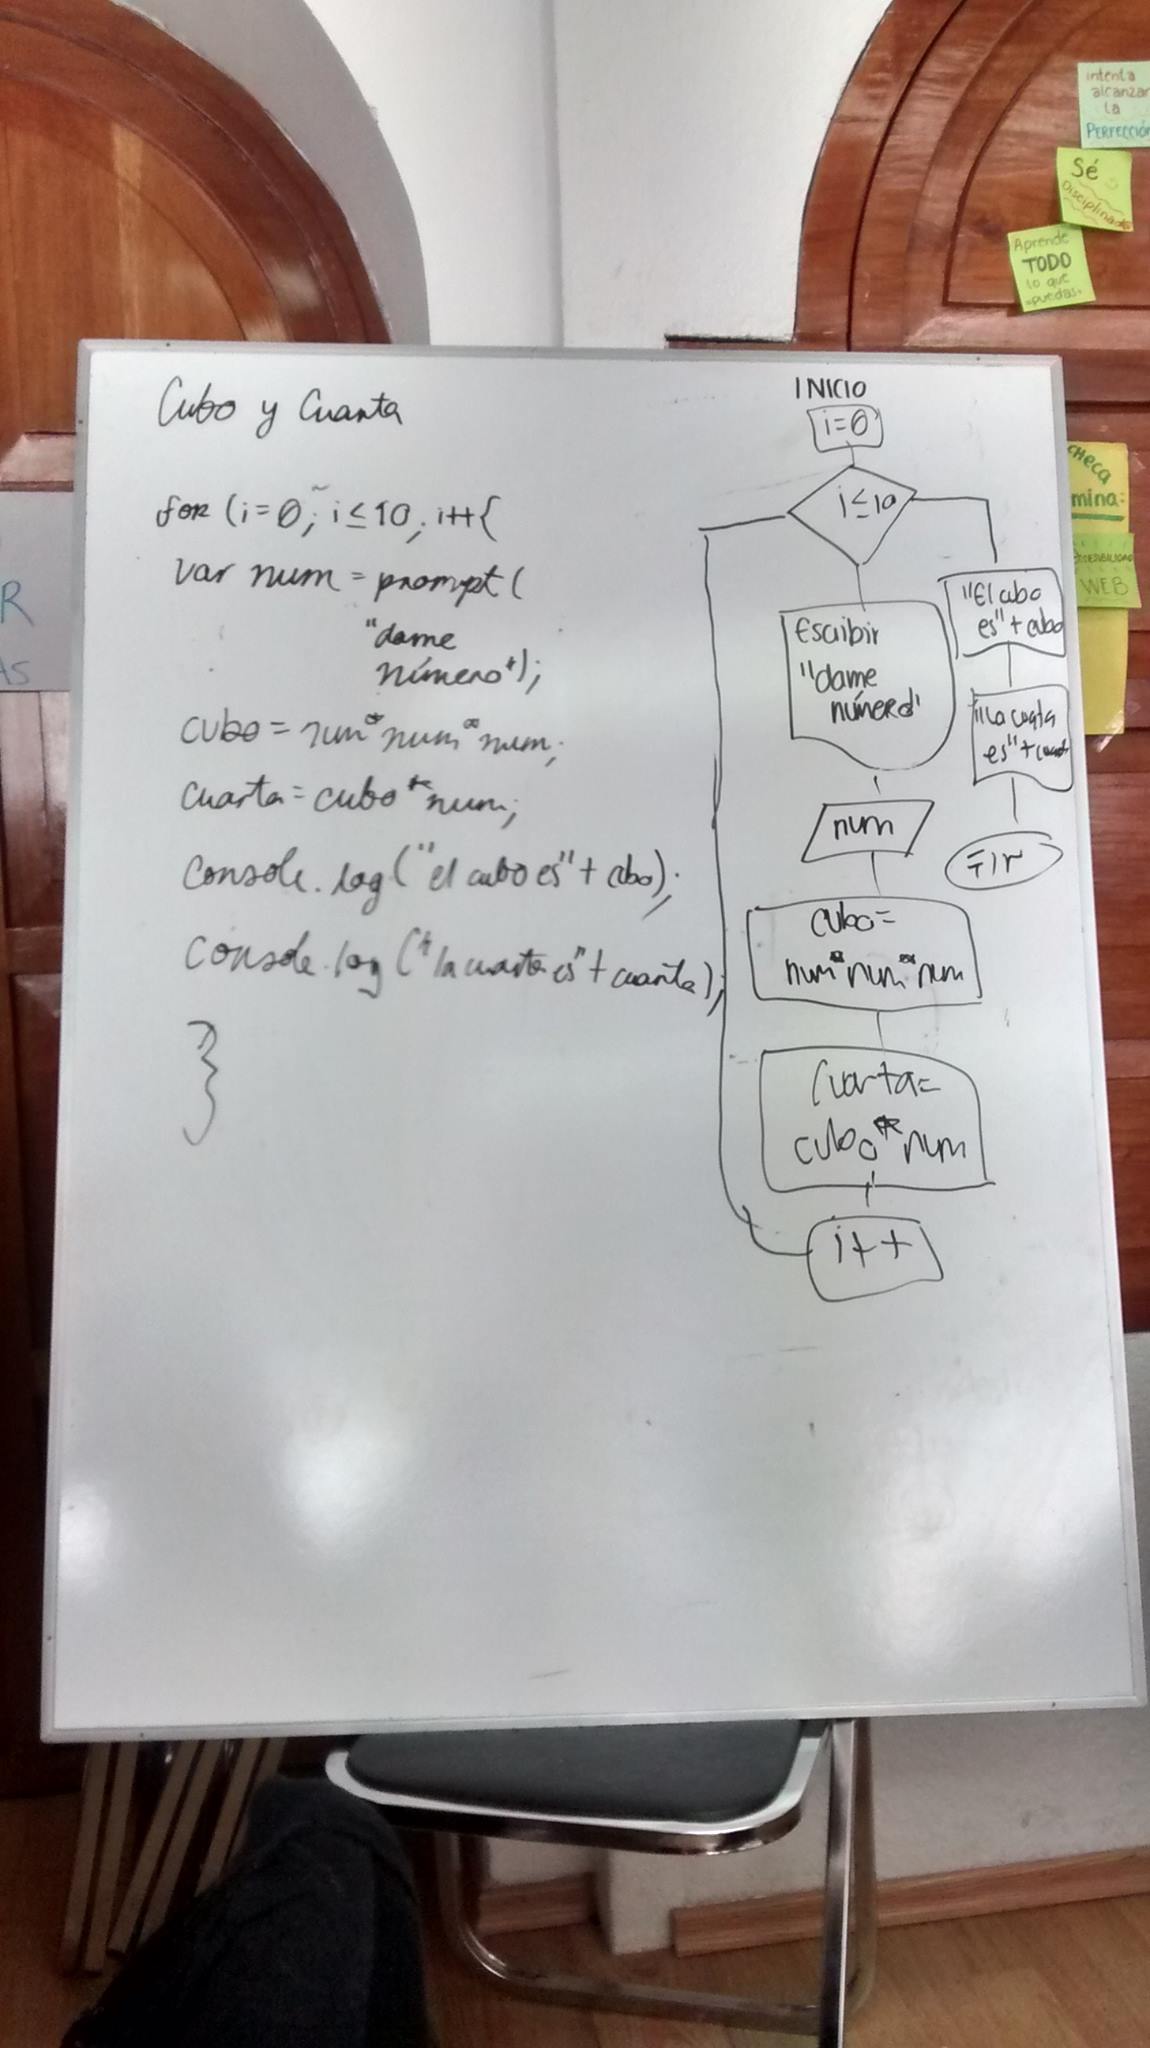 intenta
alcanzar
la
PERFECCIÓN
Sé
Disciplinado
Aprende
TODO
lo que
puedas
CHECA
mina:
WEB
R
AS
Cubo y Cuarta
for (i=0; i≤10; i++{
var num = prompt(
"dame
número");
cubo = num*num*num;
cuarta = cubo*num;
console.log("el cubo es" + cubo);
console.log("la cuarta es" + cuarta);
}
INICIO
i=0
i≤10
Escribir
"dame
número"
num
cubo=
num*num*num
Cuarta=
cubo*num
i++
"El cubo
es" + cubo
"La cuarta
es" + cuart
Fin